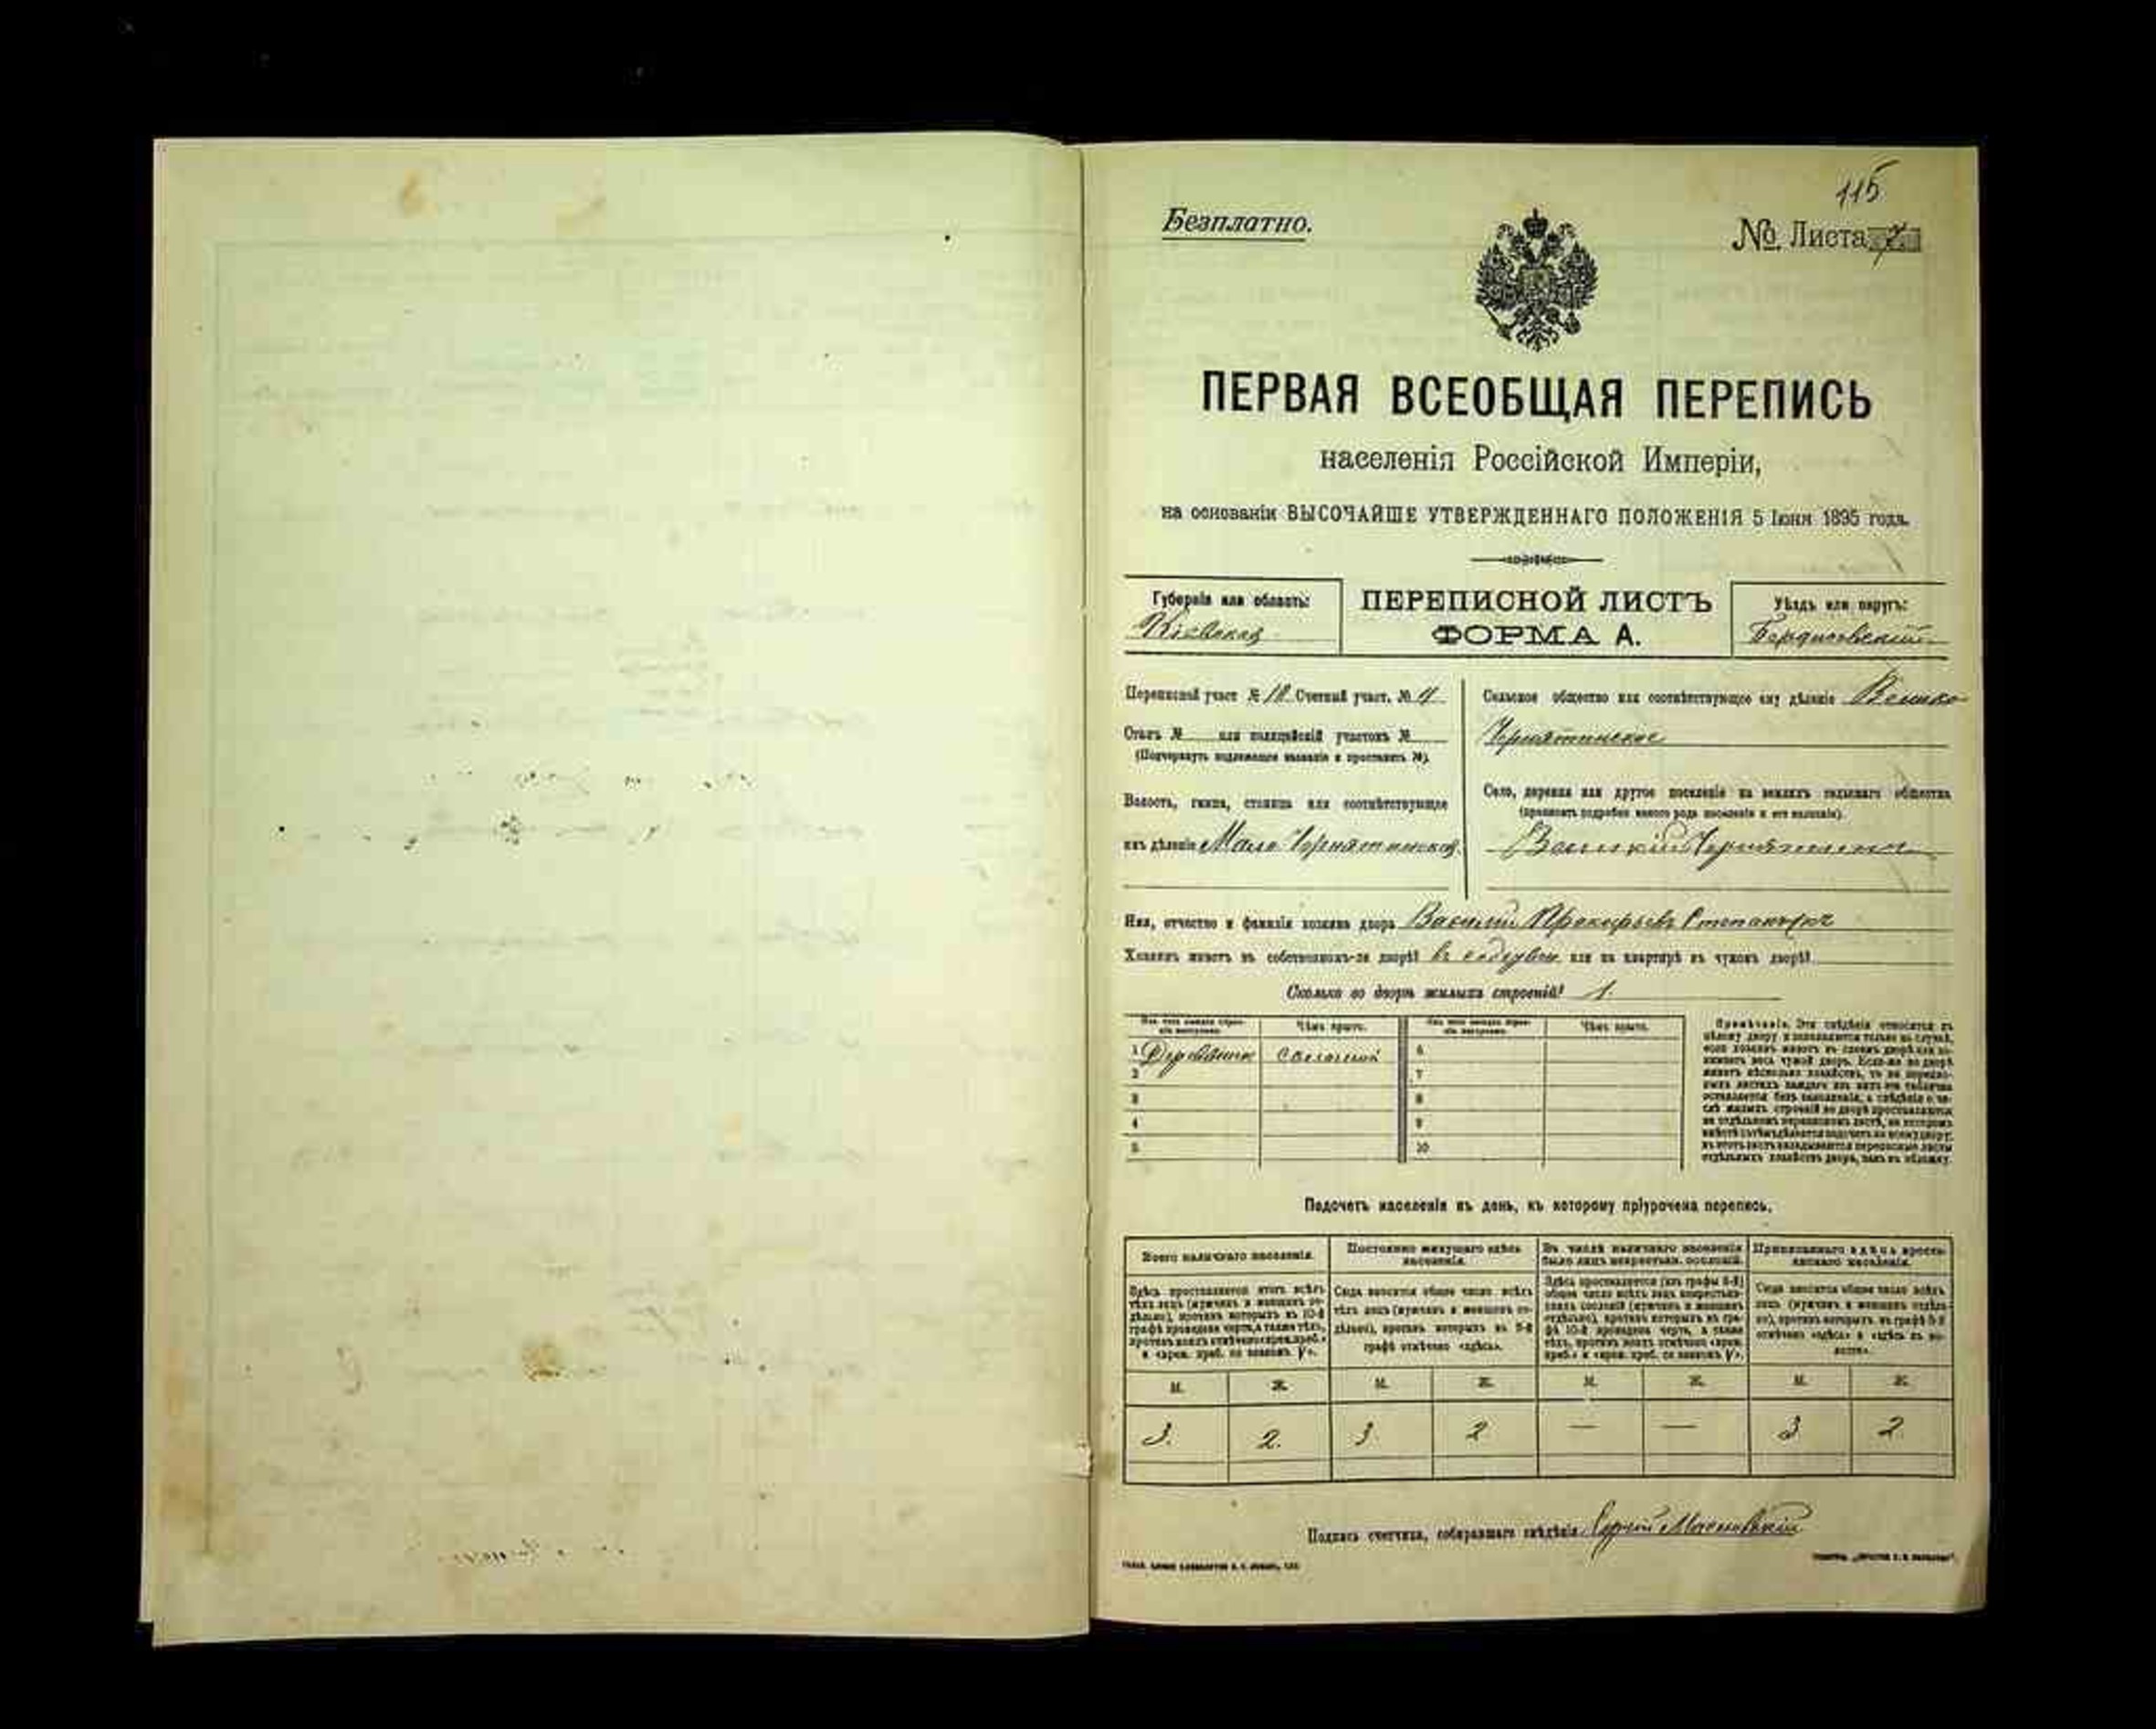 115
Безплатно.
№ Листа 7
ПЕРВАЯ ВСЕОБЩАЯ ПЕРЕПИСЬ
населенія Россійской Имперіи,
на основаніи ВЫСОЧАЙШЕ УТВЕРЖДЕННАГО ПОЛОЖЕНІЯ 5 Іюня 1895 года.
Губернія или область:
Кіевская
ПЕРЕПИСНОЙ ЛИСТЪ
ФОРМА А.
Уѣздъ или округъ:
Бердичевскій
Переписной участ. № 18 Счетный участ. № 4
Станъ № или полицейскій участокъ №
(Подчеркнуть подлежащее названіе и проставить №).
Волость, гмина, станица или соотвѣтствующее
имъ дѣленіе Мало Чернятинская
Сельское общество или соотвѣтствующее ему дѣленіе Велико
Чернятинское
Село, деревня или другое поселеніе на земляхъ сельскаго общества
(прописать подробно какого рода поселеніе и его названіе).
Великій Чернятинъ
Имя, отчество и фамилія хозяина двора Василій Прокофьевъ Степанчукъ
Хозяинъ живетъ въ собственномъ-ли дворѣ? или на квартирѣ въ чужомъ дворѣ?
Сколько во дворѣ жилыхъ строеній? 1.
Изъ чего каждое строеніе выстроено.
Чѣмъ крыто.
Изъ чего каждое строеніе выстроено.
Чѣмъ крыто.
1 Деревянное соломой 6
2 7
3 8
4 9
5 10
Примѣчаніе. Эти свѣдѣнія относятся къ
цѣлому двору и заполняются только въ случаѣ,
если хозяинъ живетъ въ своемъ дворѣ или занимаетъ весь чужой дворъ. Если-же во дворѣ
живетъ нѣсколько хозяйствъ, то на переписныхъ листахъ каждаго изъ нихъ эта табличка
оставляется безъ заполненія, а свѣдѣнія о числѣ жилыхъ строеній во дворѣ проставляются
на отдѣльномъ переписномъ листѣ, на которомъ
вмѣстѣ съ тѣмъ дѣлается подсчетъ по всему двору;
въ этотъ листъ вкладываются переписные листы
отдѣльныхъ хозяйствъ двора, какъ въ обложку.
Подсчетъ населенія въ день, къ которому пріурочена перепись.
Всего наличнаго населенія.
Постоянно живущаго здѣсь населенія.
Въ числѣ наличнаго населенія было лицъ некрестьян. сословій.
Приписаннаго здѣсь крестьянскаго населенія.
Здѣсь проставляется итогъ всѣхъ
тѣхъ лицъ (мужчинъ и женщинъ отдѣльно), противъ которыхъ въ 10-й
графѣ проведена черта, а также тѣхъ,
противъ коихъ отмѣчено «врем. преб.»
и «врем. преб. со знакомъ V».
Сюда вносится общее число всѣхъ
тѣхъ лицъ (мужчинъ и женщинъ отдѣльно), противъ которыхъ въ 9-й
графѣ отмѣчено «здѣсь».
Здѣсь проставляется (изъ графы 4-й)
общее число всѣхъ лицъ некрестьянскихъ сословій (мужчинъ и женщинъ
отдѣльно), противъ которыхъ въ графѣ 10-й проведена черта, а также
тѣхъ, противъ коихъ отмѣчено «врем.
преб.» и «врем. преб. со знакомъ V».
Сюда вносится общее число всѣхъ
лицъ (мужчинъ и женщинъ отдѣльно), противъ которыхъ въ графѣ 8-й
отмѣчено «здѣсь» и «здѣсь въ волости».
М. Ж. М. Ж. М. Ж. М. Ж.
3. 2. 3 2 — — 3 2
Подпись счетчика, собиравшаго свѣдѣнія Сергій